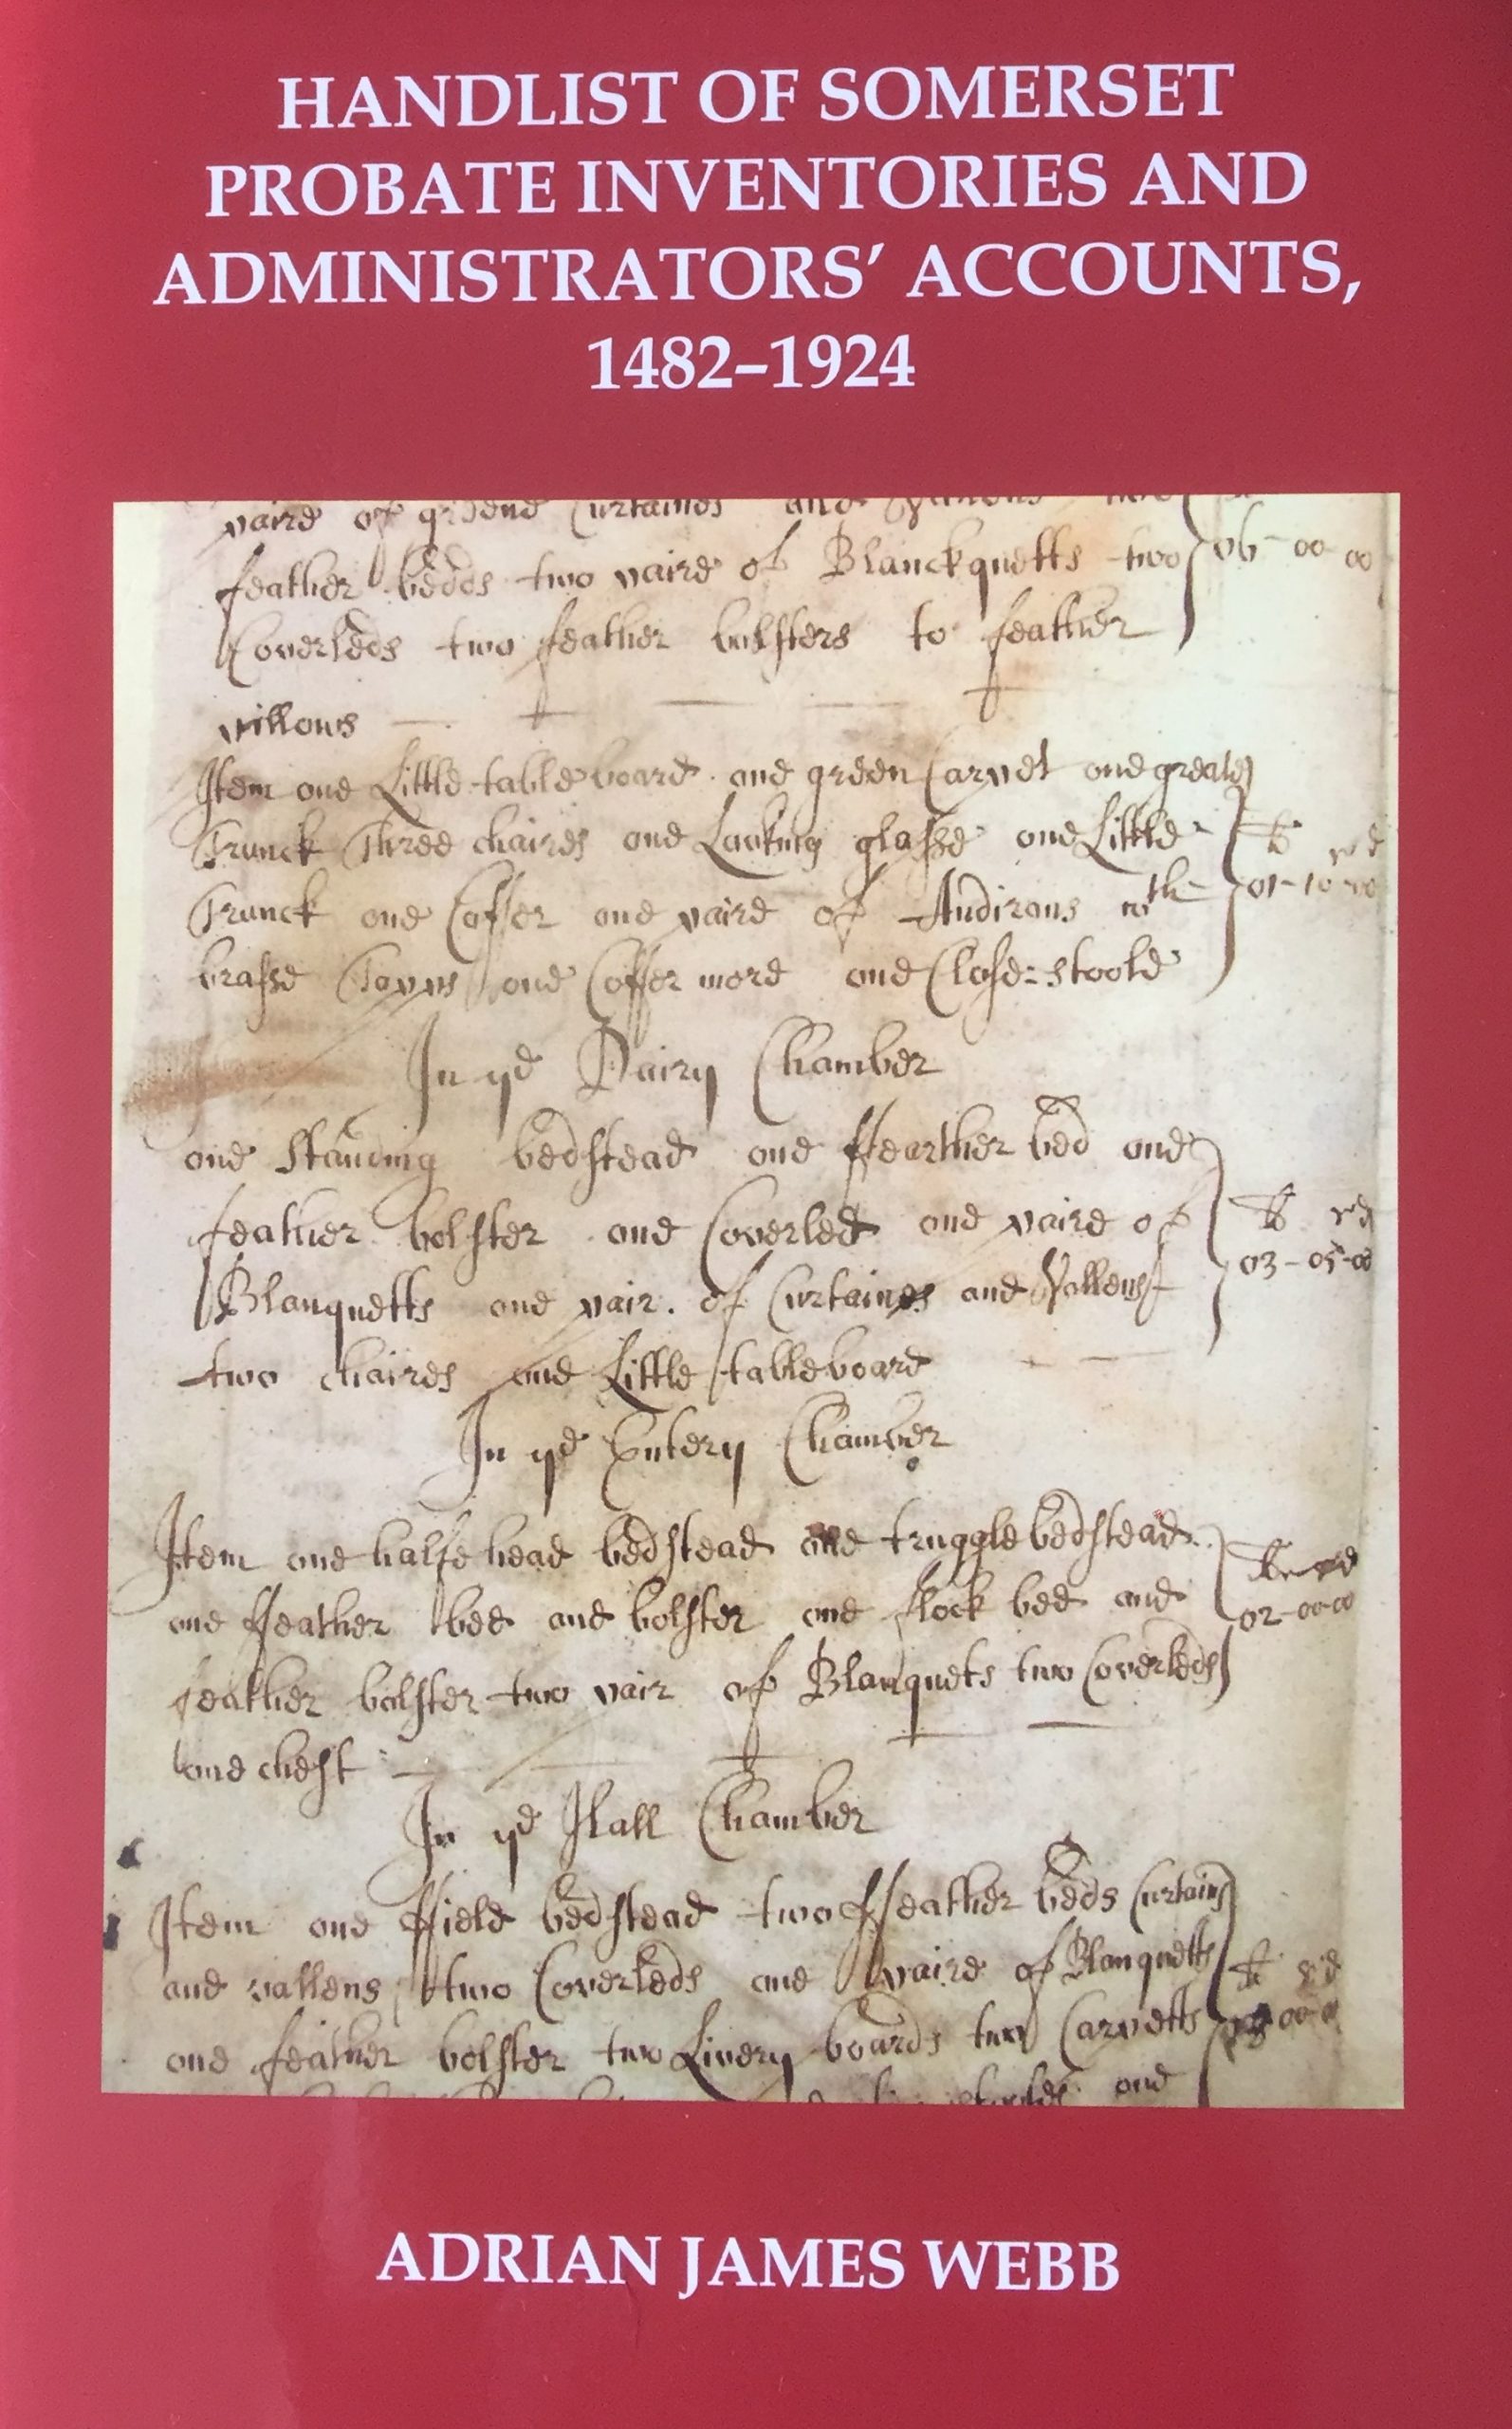 HANDLIST OF SOMERSET
PROBATE INVENTORIES AND
ADMINISTRATORS’ ACCOUNTS,
1482–1924
paire of greene Curtaines and
feather bedds two paire of Blanckquetts two 06-00-00
Coverleds two feather bolsters to feather
pillows
Item one Little table board one green Carpet one greate
Trunck Three chaires one Looking glasse one Little
Trunck one Coffer one paire of Andirons wth 01-10-00
brasse Topps one Coffer more one Close=stoole
In ye Dairy Chamber
one Standing bedstead one ffearther bed one
feather bolster one Coverled one paire of
Blanquetts one pair. of Curtaines and Vallens 03-05-00
two chaires one Little tableboard
In ye Entery Chamber
Item one halfe head bedstead one truggle bedstead
one ffeather bed and bolster one flock bed and 02-00-00
feather bolster two pair of Blanquets two Coverleds
one chest
In ye Hall Chamber
Item one ffield bedstead two ffeather beds Curtains
and vallens two Coverleds one paire of Blanquetts
one feather bolster two Livery boards two Carpetts
and
ADRIAN JAMES WEBB